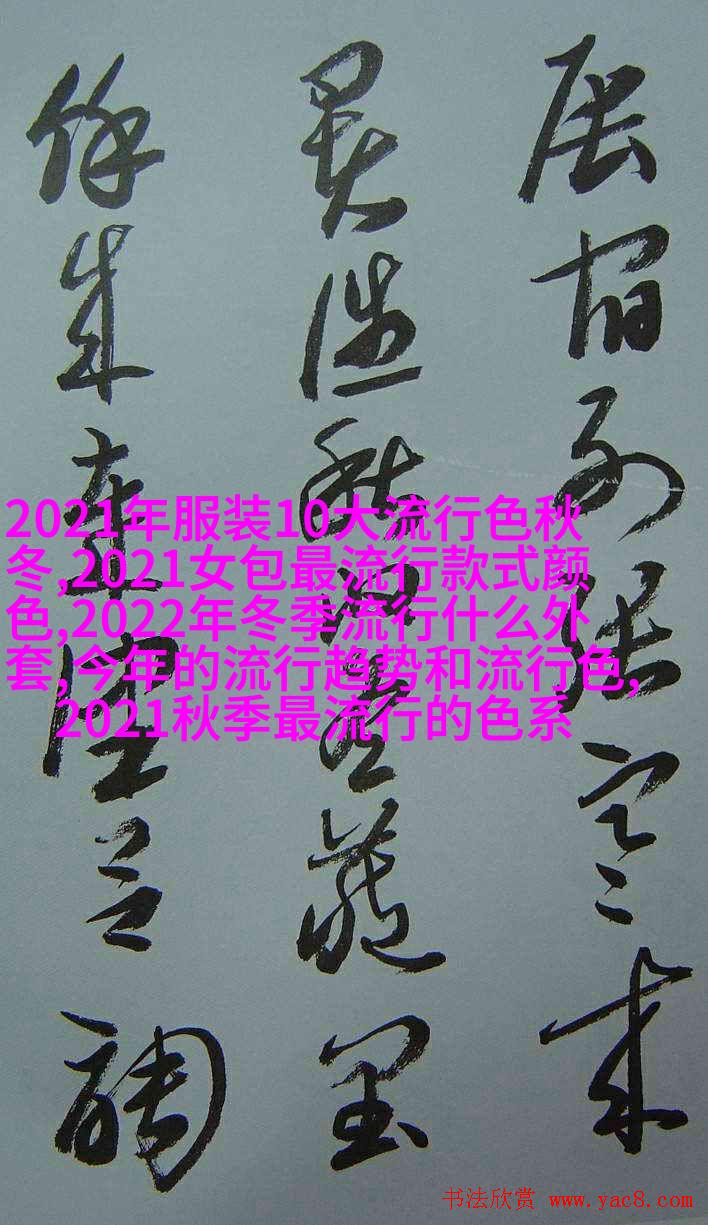 辰宿列張寒來
暑往秋收冬藏閏
餘成歲律呂調
2021年服装10大流行色秋
冬,2021女包最流行款式颜
色,2022年冬季流行什么外
套,今年的流行趋势和流行色,
2021秋季最流行的色系
书法欣赏 www.yac8.com